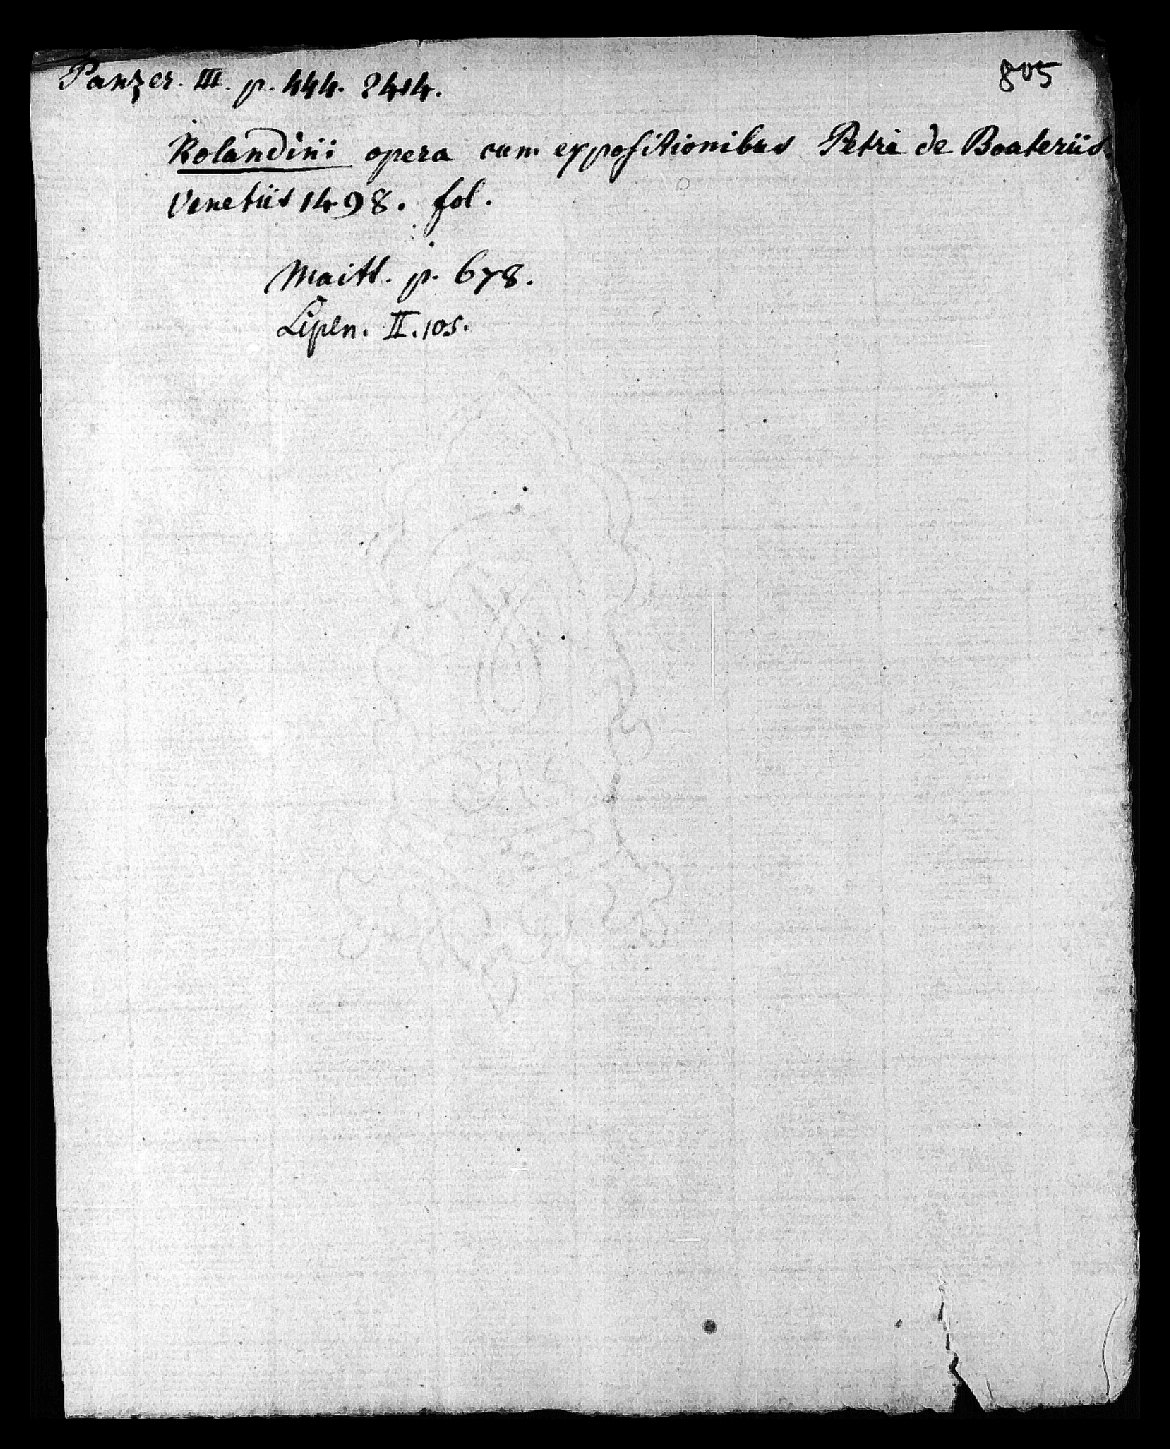 Panzer. III. p. 444. 2414.
805
Rolandini opera cum expositionibus Petri de Boateriis.
Venetiis 1498. fol.
Maitt. p. 678.
Lipen. II. 105.